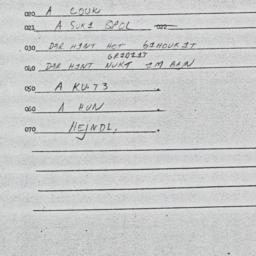 020 A COUK
021 A SUKI SPOL
030 DAR HINT HOT GIHOUKIT
GRIDIIT
040 DAR HINT NUKT IM BAIN
050 A KU-T3
060 A HUN
070 HEJNDL.